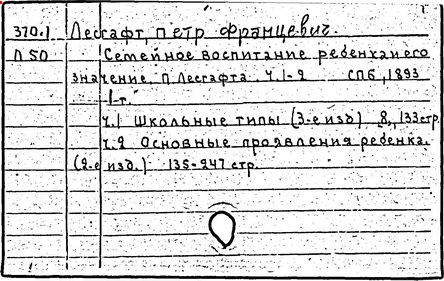 370.1 Лесгафт, Петр Францевич.
Л 50 Семейное воспитание ребенка и его
значение. П. Лесгафта. Ч. 1-2 СПб, 1893
1 т.
ч.1 Школьные типы (3-е изд) 8, 133 стр.
ч.2 Основные проявления ребенка.
(2-е изд.) 135-247 стр.